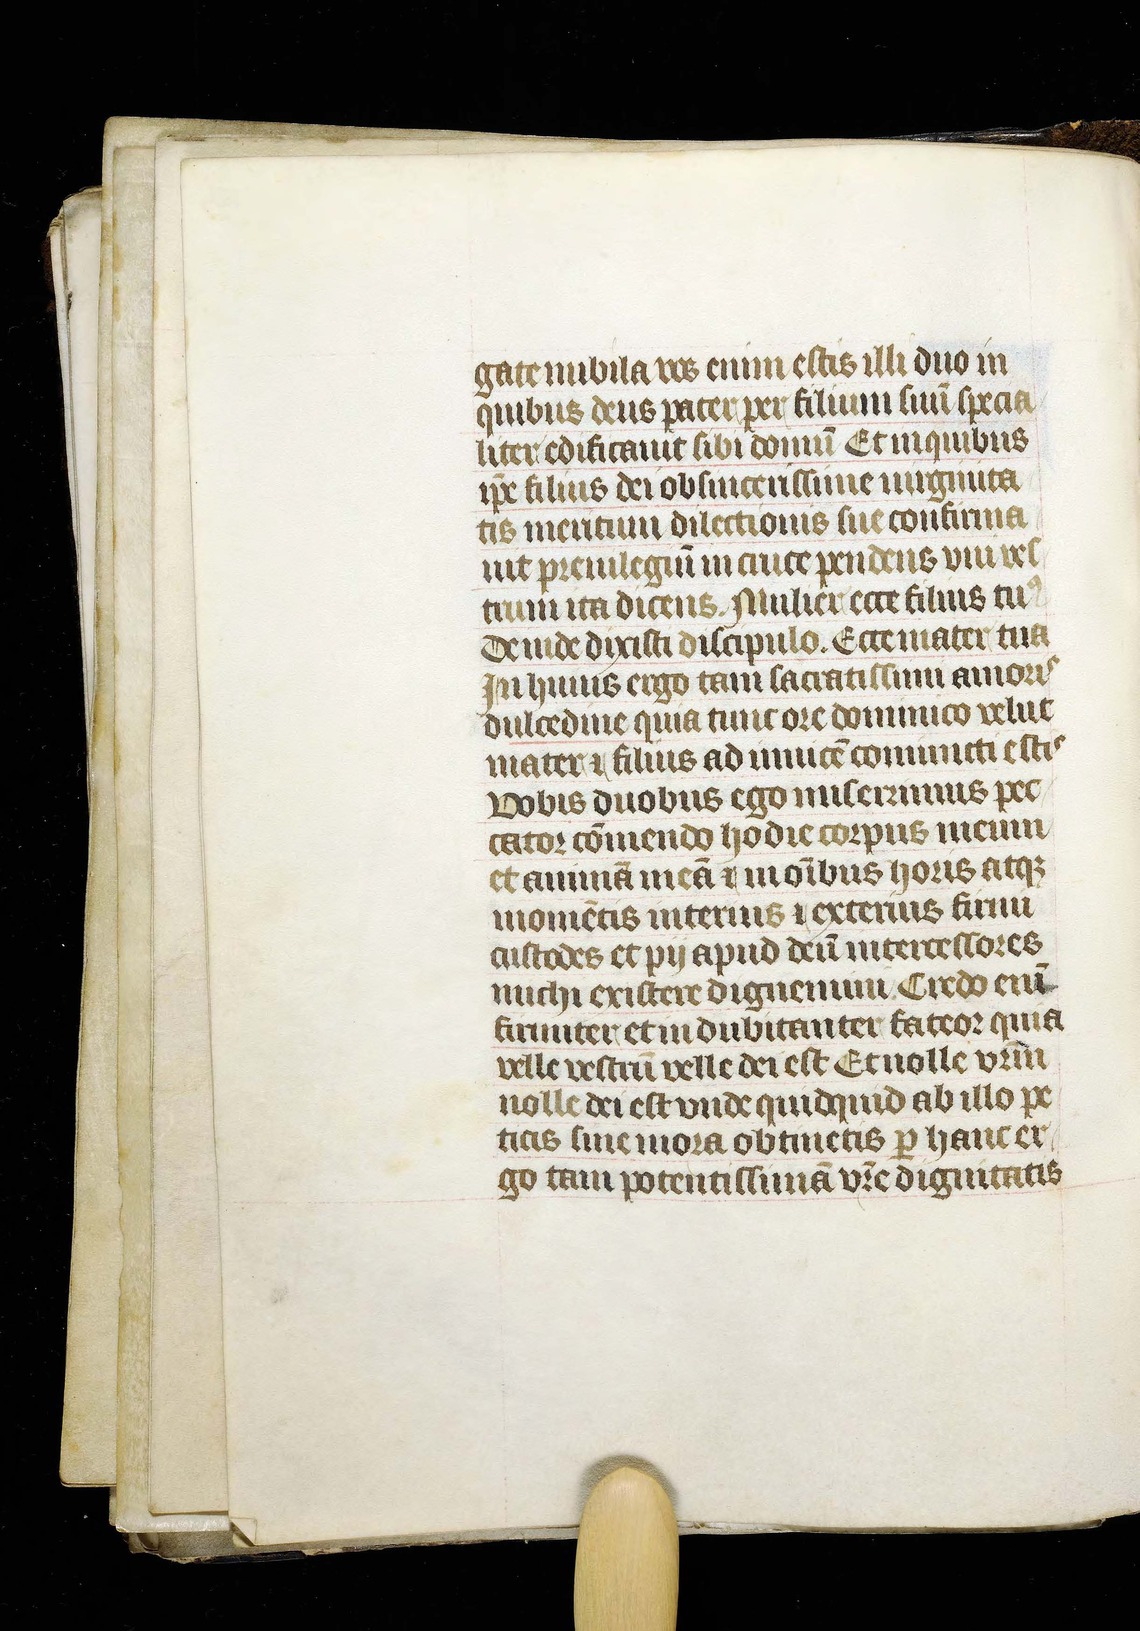 gate nubila vos enim estis illi duo in
quibus deus pater per filium suū specia
liter edificauit sibi domū Et in quibus
ip̄e filius dei ob sincerissime uirginita
tis meritum dilectionis sue confirma
uit preuilegiū in cruce pendens vni ves
trum ita dicens. Mulier ecce filius tuꝰ
Deinde dixisti discipulo. Ecce mater tua
In huius ergo tam sacratissimi amoris
dulcedine quia tunc ore dominico velut
mater ⁊ filius ad inuicē coniuncti estis
Vobis duobus ego miserrimus pec
cator cōmendo hodie corpus meum
et animā meā ⁊ in oībus horis atqꝫ
momētis interius ⁊ exterius firmi
custodes et pij apud deū intercessores
michi existere dignemini Credo enī
firmiter et indubitanter fateor quia
velle vestrū velle dei est Et nolle vr̄m
nolle dei est vnde quidquid ab illo pe
ticis sine mora obtinetis ꝑ hanc er
go tam potentissimā vr̄e dignitatis